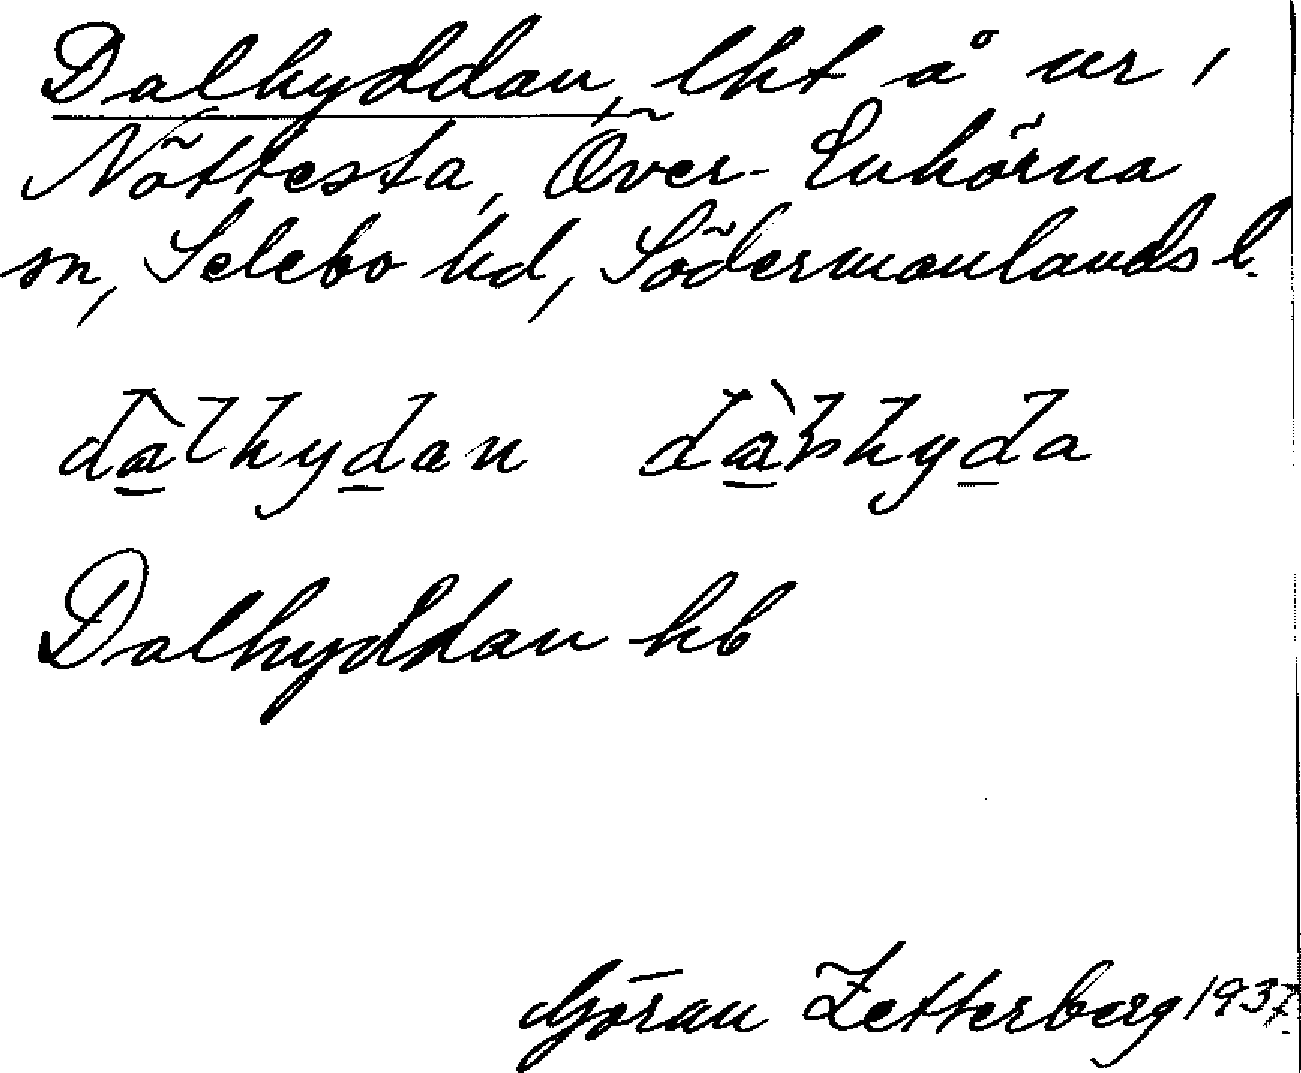 Dalhyddan, lht å ur,
Nöttesta, Över-Enhörna
sn, Selebo hd, Södermanlands l.
dàlhydan dàlhyda
Dalhyddan hb
Göran Zetterberg 1937.